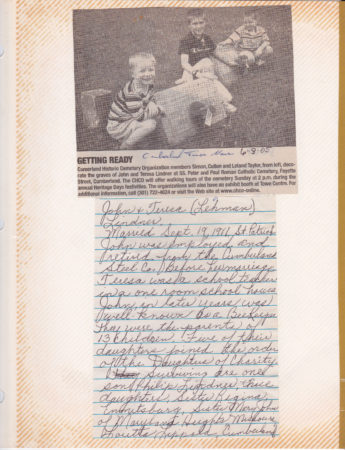 GETTING READY
Cumberland Times News 6-8-05
Cumberland Historic Cemetery Organization members Simon, Cullen and Leland Taylor, from left, deco-
rate the graves of John and Teresa Lindner at SS. Peter and Paul Roman Catholic Cemetery, Fayette
Street, Cumberland. The CHCO will offer walking tours of the cemetery Sunday at 2 p.m. during the
annual Heritage Days festivities. The organizations will also have an exhibit booth at Town Centre. For
additional information, call (301) 722-4624 or visit the Web site at www.chco-online.
John & Teresa (Lehman)
Lindner
Married Sept. 19, 1911 St Patrick
John was employed and
retired from the Cumberland
Steel Co. Before her marriage
Teresa was a school teacher
in a one room school house
John, in later years was
well known as a Beekeeper
They were the parents of
13 children. Five of their
daughters joined the order
of the Daughters of Charity
Surviving are one
son Philip Lindner, three
daughters, Sister Regina,
Emmitsburg, Sister Mary
of Maryland Heights Missouri
Loretta Cumberland